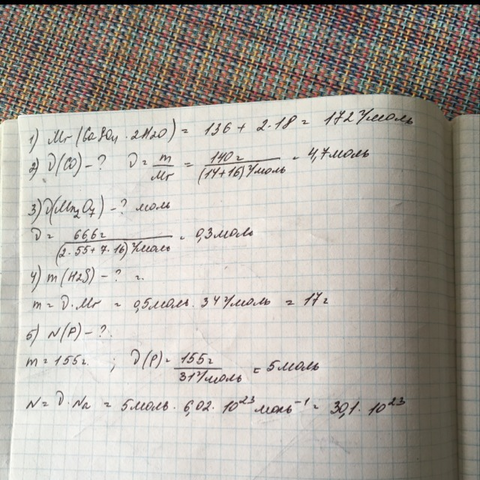 1) Mr(CaSO4 · 2H2O) = 136 + 2·18 = 172 г/моль
2) ϑ(CO) - ? ϑ = m/Mr = 140г/(14+16) г/моль = 4,7 моль
3) ϑ(Mn2O7) - ? моль
ϑ = 66,6г/(2·55+7·16) г/моль = 0,3 моль
4) m(H2S) - ? г.
m = ϑ · Mr = 0,5 моль · 34 г/моль = 17г
5) N(P) - ?
m = 155г ; ϑ(P) = 155г/31 г/моль = 5 моль
N = ϑ · Na = 5 моль · 6,02 · 10^23 моль^-1 = 30,1 · 10^23